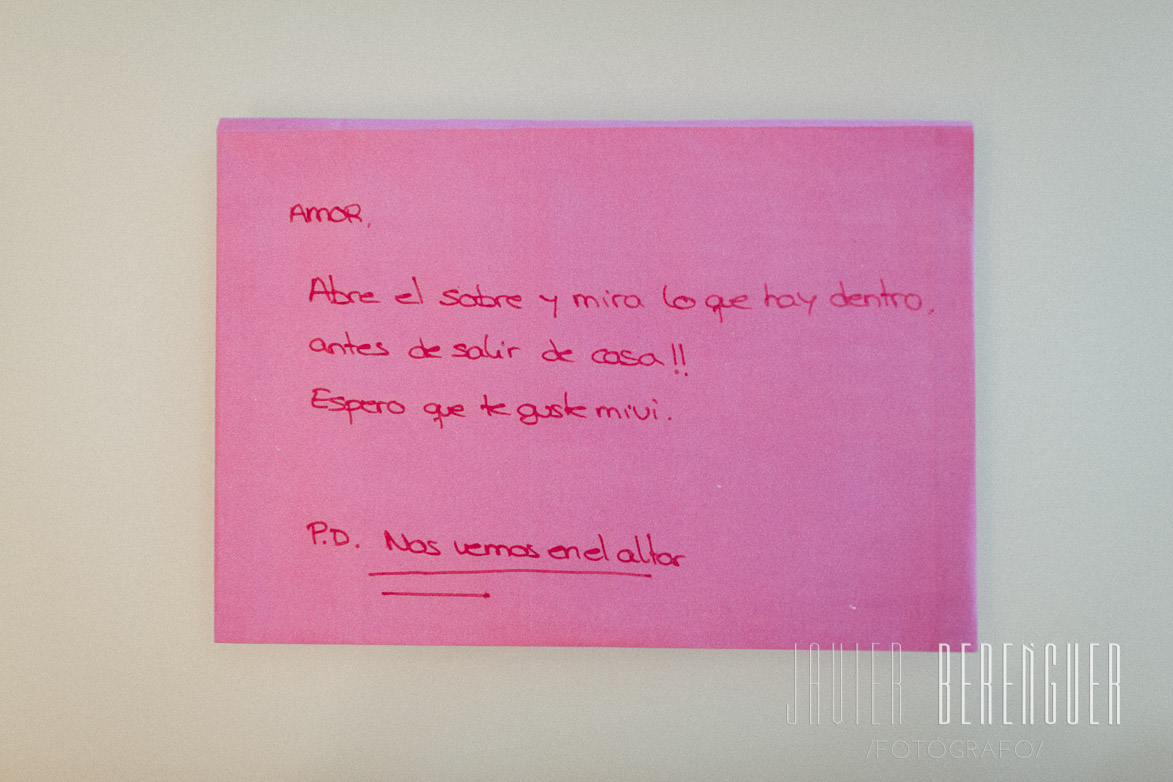 AMOR,
Abre el sobre y mira lo que hay dentro,
antes de salir de casa!!
Espero que te guste mivi.
P.D. Nos vemos en el altar
JAVIER BERENGUER
/FOTÓGRAFO/